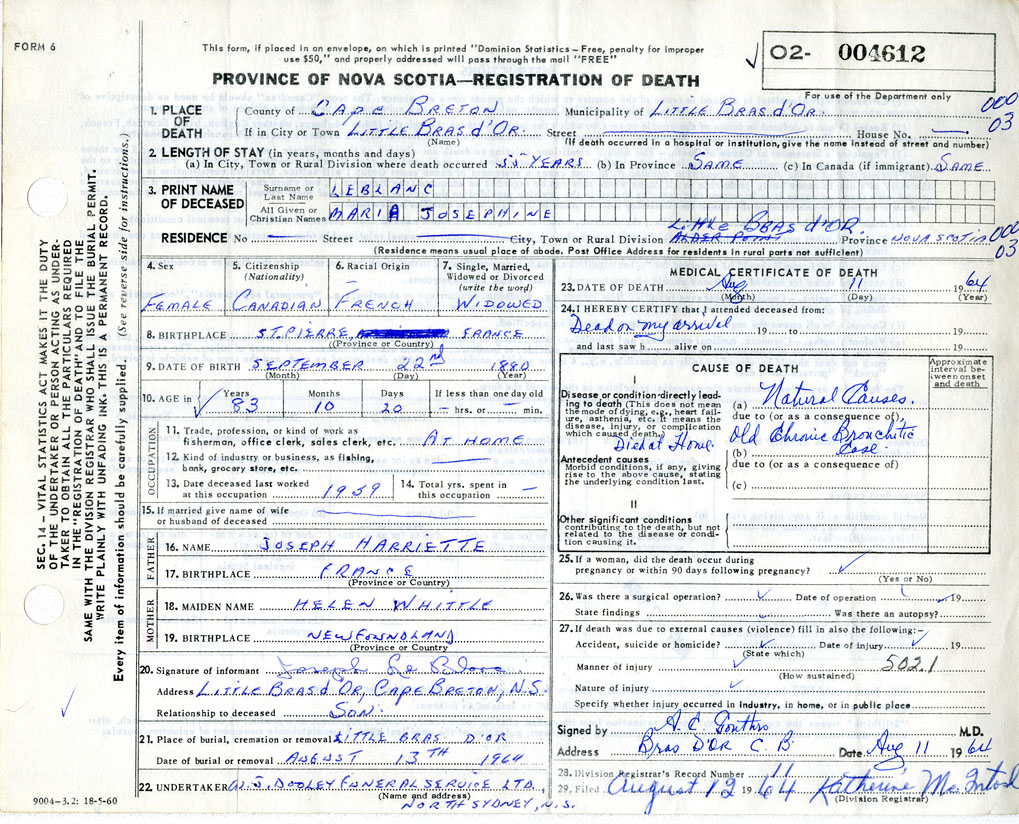 FORM 6
This form, if placed in an envelope, on which is printed "Dominion Statistics – Free, penalty for improper
use $50," and properly addressed will pass through the mail "FREE"
O2- 004612
PROVINCE OF NOVA SCOTIA—REGISTRATION OF DEATH
For use of the Department only
000
03
1. PLACE OF DEATH
County of CAPE BRETON Municipality of LITTLE BRAS d'OR.
If in City or Town LITTLE BRAS d'OR. Street House No.
(Name) (If death occurred in a hospital or institution, give the name instead of street and number)
2. LENGTH OF STAY (in years, months and days)
(a) In City, Town or Rural Division where death occurred 55 YEARS (b) In Province SAME (c) In Canada (if immigrant) SAME
3. PRINT NAME OF DECEASED
Surname or Last Name LEBLANC
All Given or Christian Names MARIA JOSEPHINE
Little BRAS d'OR.
RESIDENCE No Street City, Town or Rural Division ALDER POINT Province NOVA SCOTIA
000
03
(Residence means usual place of abode. Post Office Address for residents in rural parts not sufficient)
4. Sex
FEMALE
5. Citizenship (Nationality)
CANADIAN
6. Racial Origin
FRENCH
7. Single, Married, Widowed or Divorced (write the word)
WIDOWED
8. BIRTHPLACE ST. PIERRE, FRANCE
(Province or Country)
9. DATE OF BIRTH SEPTEMBER 22nd 1880
(Month) (Day) (Year)
10. AGE in Years Months Days If less than one day old
83 10 20 hrs. or min.
OCCUPATION
11. Trade, profession, or kind of work as
fisherman, office clerk, sales clerk, etc. AT HOME
12. Kind of industry or business, as fishing,
bank, grocery store, etc.
13. Date deceased last worked
at this occupation 1959
14. Total yrs. spent in
this occupation
15. If married give name of wife
or husband of deceased
FATHER
16. NAME JOSEPH HARRIETTE
17. BIRTHPLACE FRANCE
(Province or Country)
MOTHER
18. MAIDEN NAME HELEN WHITTLE
19. BIRTHPLACE NEWFOUNDLAND
(Province or Country)
20. Signature of informant Joseph Le Blanc
Address LITTLE BRAS d'OR, CAPE BRETON, N.S.
Relationship to deceased SON.
21. Place of burial, cremation or removal LITTLE BRAS D'OR
Date of burial or removal AUGUST 13TH 1964
22. UNDERTAKER W.J. DOOLEY FUNERAL SERVICE LTD.,
(Name and address)
NORTH SYDNEY, N.S.
9004–3.2: 18-5-60
MEDICAL CERTIFICATE OF DEATH
23. DATE OF DEATH Aug 11 1964
(Month) (Day) (Year)
24. I HEREBY CERTIFY that I attended deceased from:
Dead on my arrival 19 to 19
and last saw h alive on 19
CAUSE OF DEATH
Approximate interval between onset and death
I
Disease or condition directly leading to death (This does not mean
the mode of dying, e.g., heart failure, asthenia, etc. It means the
disease, injury, or complication
which caused death.)
Died at Home
(a) Natural Causes.
due to (or as a consequence of)
Old Chronic Bronchitic
(b) Case.
due to (or as a consequence of)
(c)
Antecedent causes
Morbid conditions, if any, giving
rise to the above cause, stating
the underlying condition last.
II
Other significant conditions
contributing to the death, but not
related to the disease or condition causing it.
25. If a woman, did the death occur during
pregnancy or within 90 days following pregnancy?
(Yes or No)
26. Was there a surgical operation? Date of operation 19
State findings Was there an autopsy?
27. If death was due to external causes (violence) fill in also the following:–
Accident, suicide or homicide? Date of injury 19
(State which)
Manner of injury 502.1
(How sustained)
Nature of injury
Specify whether injury occurred in industry, in home, or in public place
Signed by A. C. Gouthro M.D.
Address Bras D'OR C.B. Date Aug 11 1964
28. Division Registrar's Record Number 11
29. Filed August 12 1964 Katherine McIntosh
(Division Registrar)
SEC. 14 – VITAL STATISTICS ACT MAKES IT THE DUTY
OF THE UNDERTAKER OR PERSON ACTING AS UNDER-
TAKER TO OBTAIN ALL THE PARTICULARS REQUIRED
IN THE "REGISTRATION OF DEATH" AND TO FILE THE
SAME WITH THE DIVISION REGISTRAR WHO SHALL ISSUE THE BURIAL PERMIT.
WRITE PLAINLY WITH UNFADING INK. THIS IS A PERMANENT RECORD.
Every item of information should be carefully supplied. (See reverse side for instructions.)